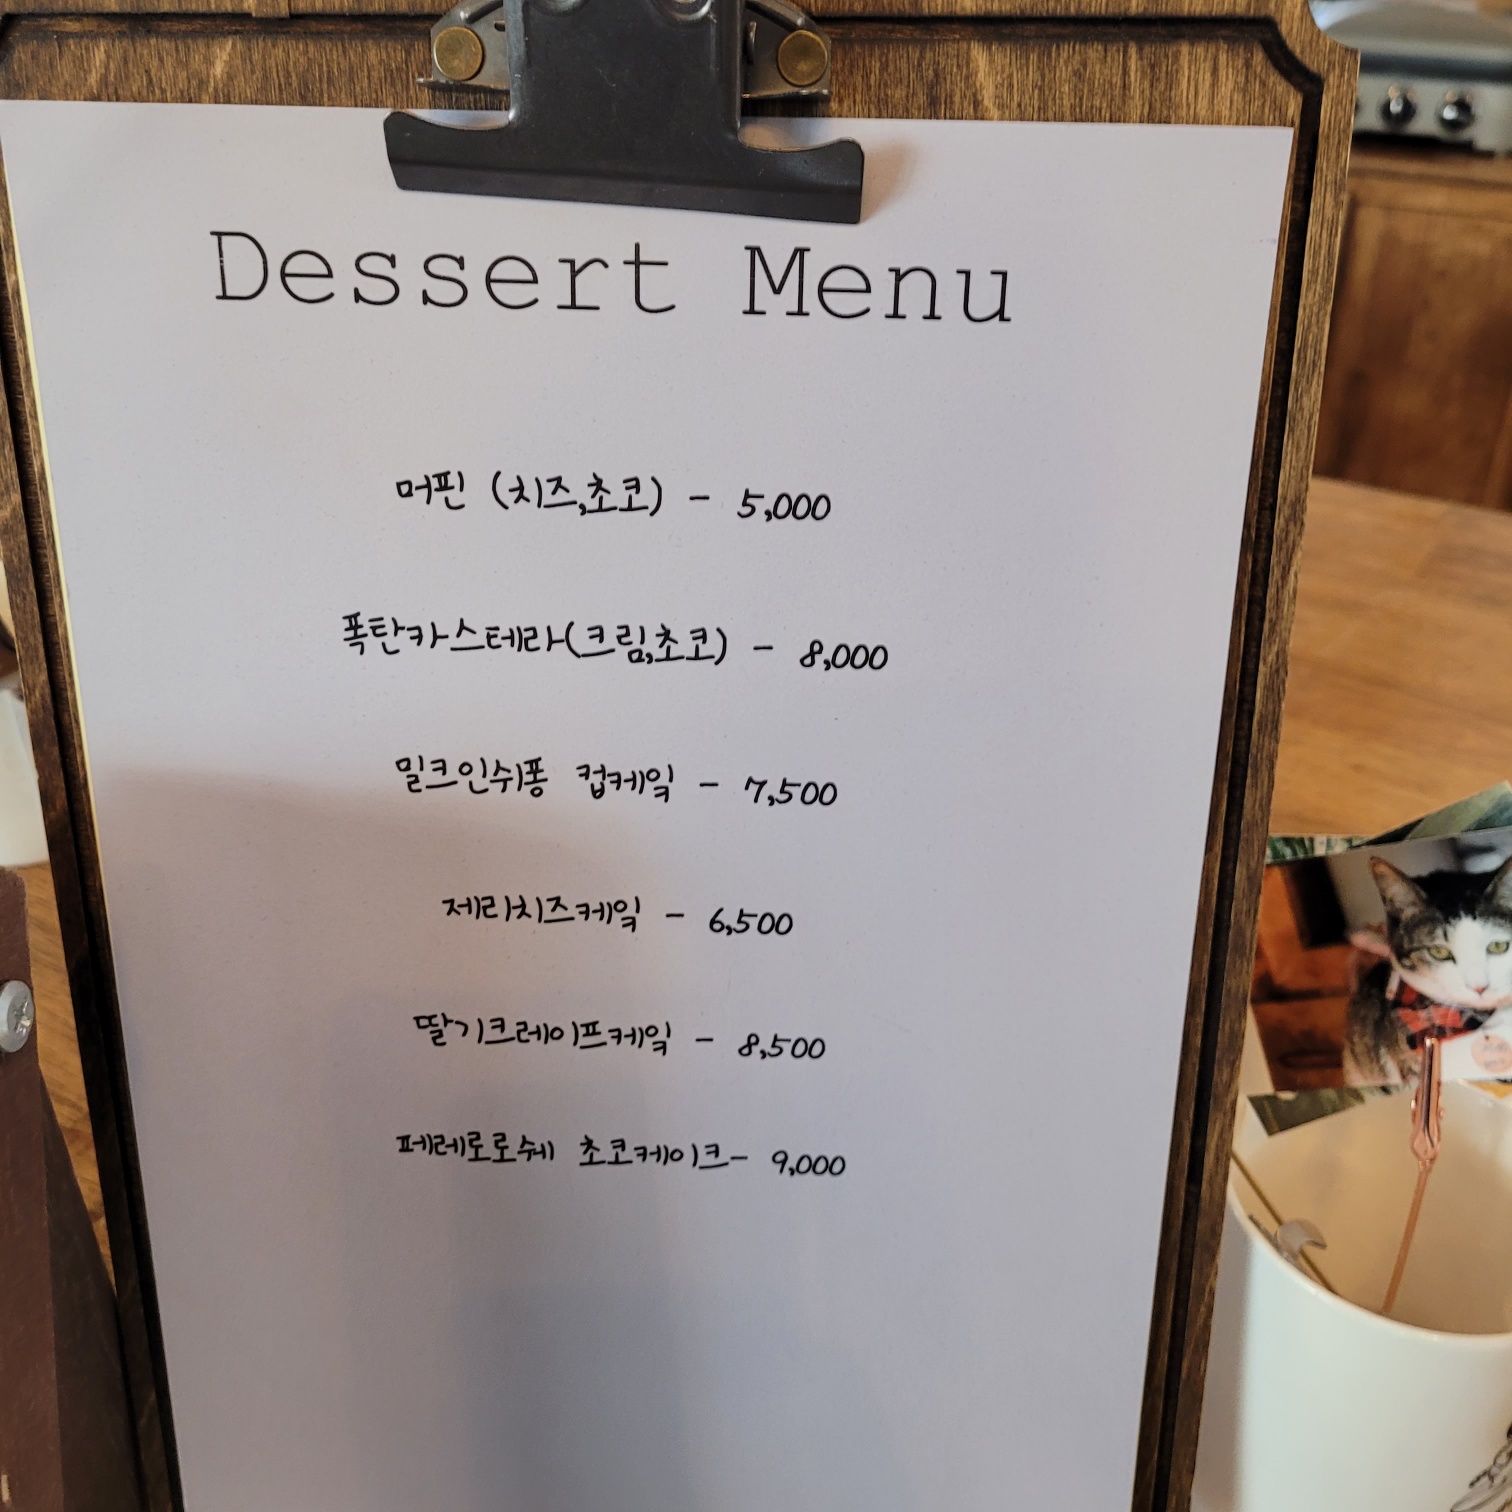 Dessert Menu
머핀 (치즈,초코) - 5,000
폭탄카스테라(크림,초코) - 8,000
밀크인쉬퐁 컵케잌 - 7,500
제리치즈케잌 - 6,500
딸기크레이프케잌 - 8,500
페레로로쉐 초코케이크- 9,000